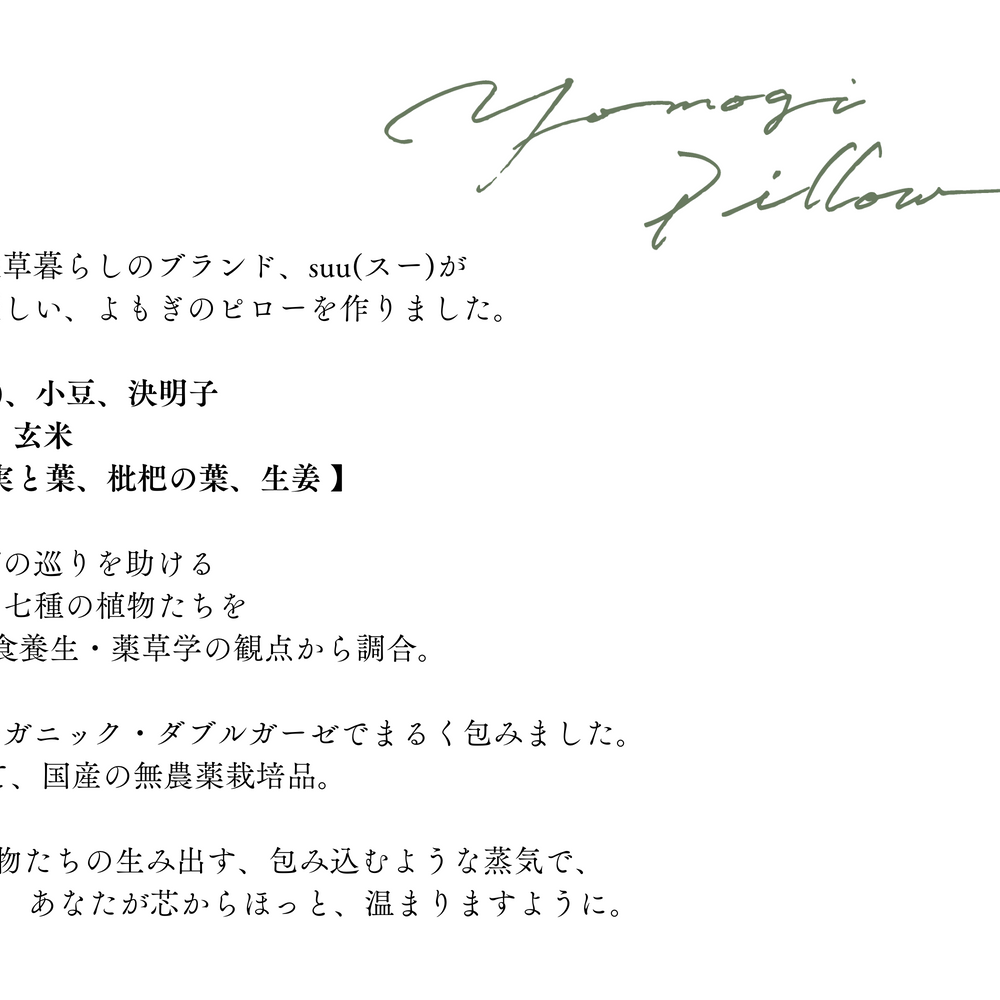 Yomogi
Pillow
草暮らしのブランド、suu(スー)が
しい、よもぎのピローを作りました。
)、小豆、決明子
玄米
実と葉、枇杷の葉、生姜 】
の巡りを助ける
七種の植物たちを
食養生・薬草学の観点から調合。
ガニック・ダブルガーゼでまるく包みました。
て、国産の無農薬栽培品。
物たちの生み出す、包み込むような蒸気で、
あなたが芯からほっと、温まりますように。